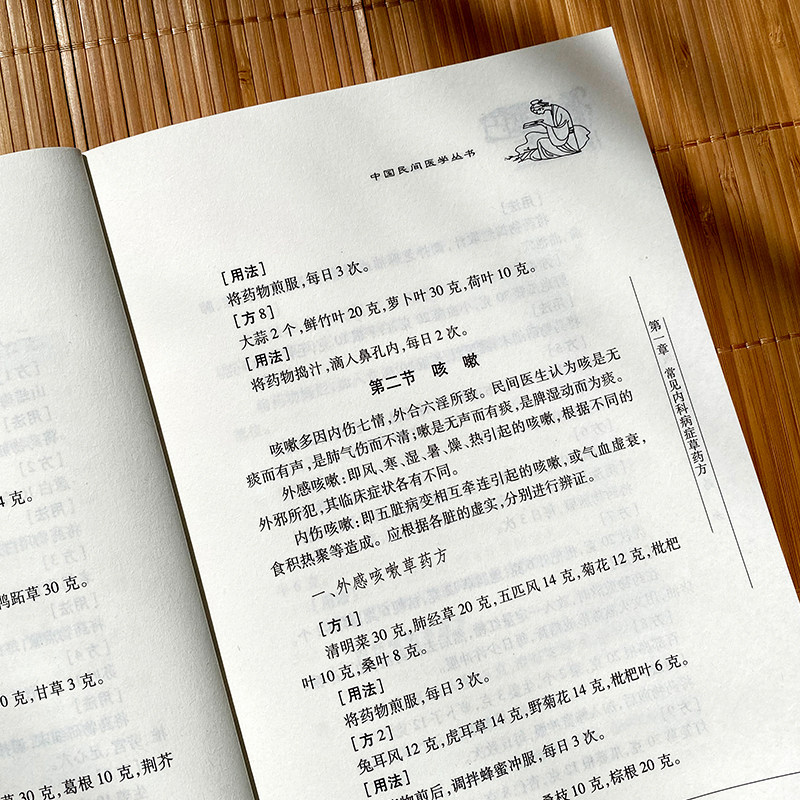 4 克。
鸭跖草 30 克。
0 克,甘草 3 克。
草 30 克,葛根 10 克,荆芥
中国民间医学丛书
[用法]
将药物煎服,每日 3 次。
[方 8]
大蒜 2 个,鲜竹叶 20 克,萝卜叶 30 克,荷叶 10 克。
[用法]
将药物捣汁,滴入鼻孔内,每日 2 次。
第二节 咳 嗽
咳嗽多因内伤七情,外合六淫所致。民间医生认为咳是无
痰而有声,是肺气伤而不清;嗽是无声而有痰,是脾湿动而为痰。
外感咳嗽:即风、寒、湿、暑、燥、热引起的咳嗽,根据不同的
外邪所犯,其临床症状各有不同。
内伤咳嗽:即五脏病变相互牵连引起的咳嗽,或气血虚衰,
食积热聚等造成。应根据各脏的虚实,分别进行辨证。
一、外感咳嗽草药方
[方 1]
清明菜 30 克,肺经草 20 克,五匹风 14 克,菊花 12 克,枇杷
叶 10 克,桑叶 8 克。
[用法]
将药物煎服,每日 3 次。
[方 2]
兔耳风 12 克,虎耳草 14 克,野菊花 14 克,枇杷叶 6 克。
[用法]
物煎后,调拌蜂蜜冲服,每日 3 次。
桑枝 10 克,棕根 20 克。
第一章 常见内科病症草药方